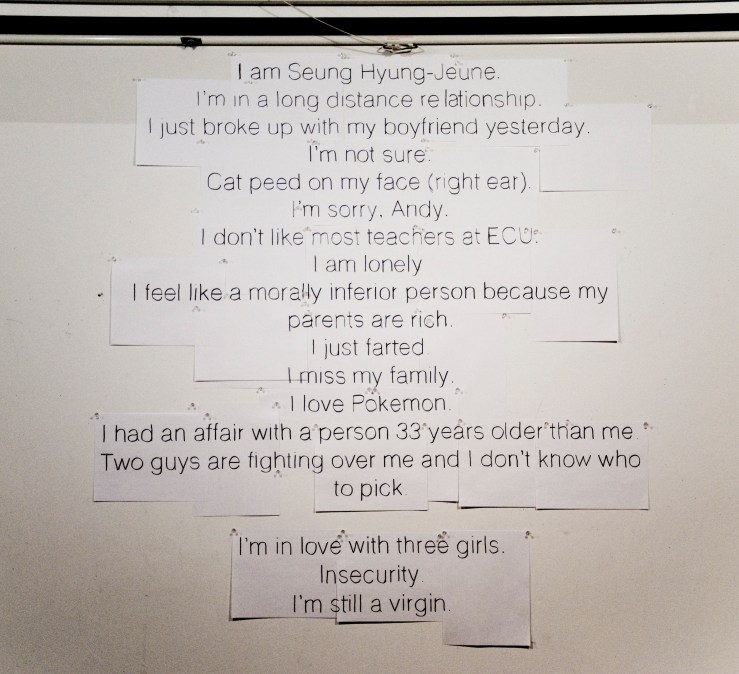 I am Seung Hyung-Jeune.
I'm in a long distance relationship.
I just broke up with my boyfriend yesterday.
I'm not sure.
Cat peed on my face (right ear).
I'm sorry, Andy.
I don't like most teachers at ECU.
I am lonely
I feel like a morally inferior person because my
parents are rich.
I just farted
I miss my family.
I love Pokemon.
I had an affair with a person 33 years older than me.
Two guys are fighting over me and I don't know who
to pick
I'm in love with three girls.
Insecurity
I'm still a virgin.